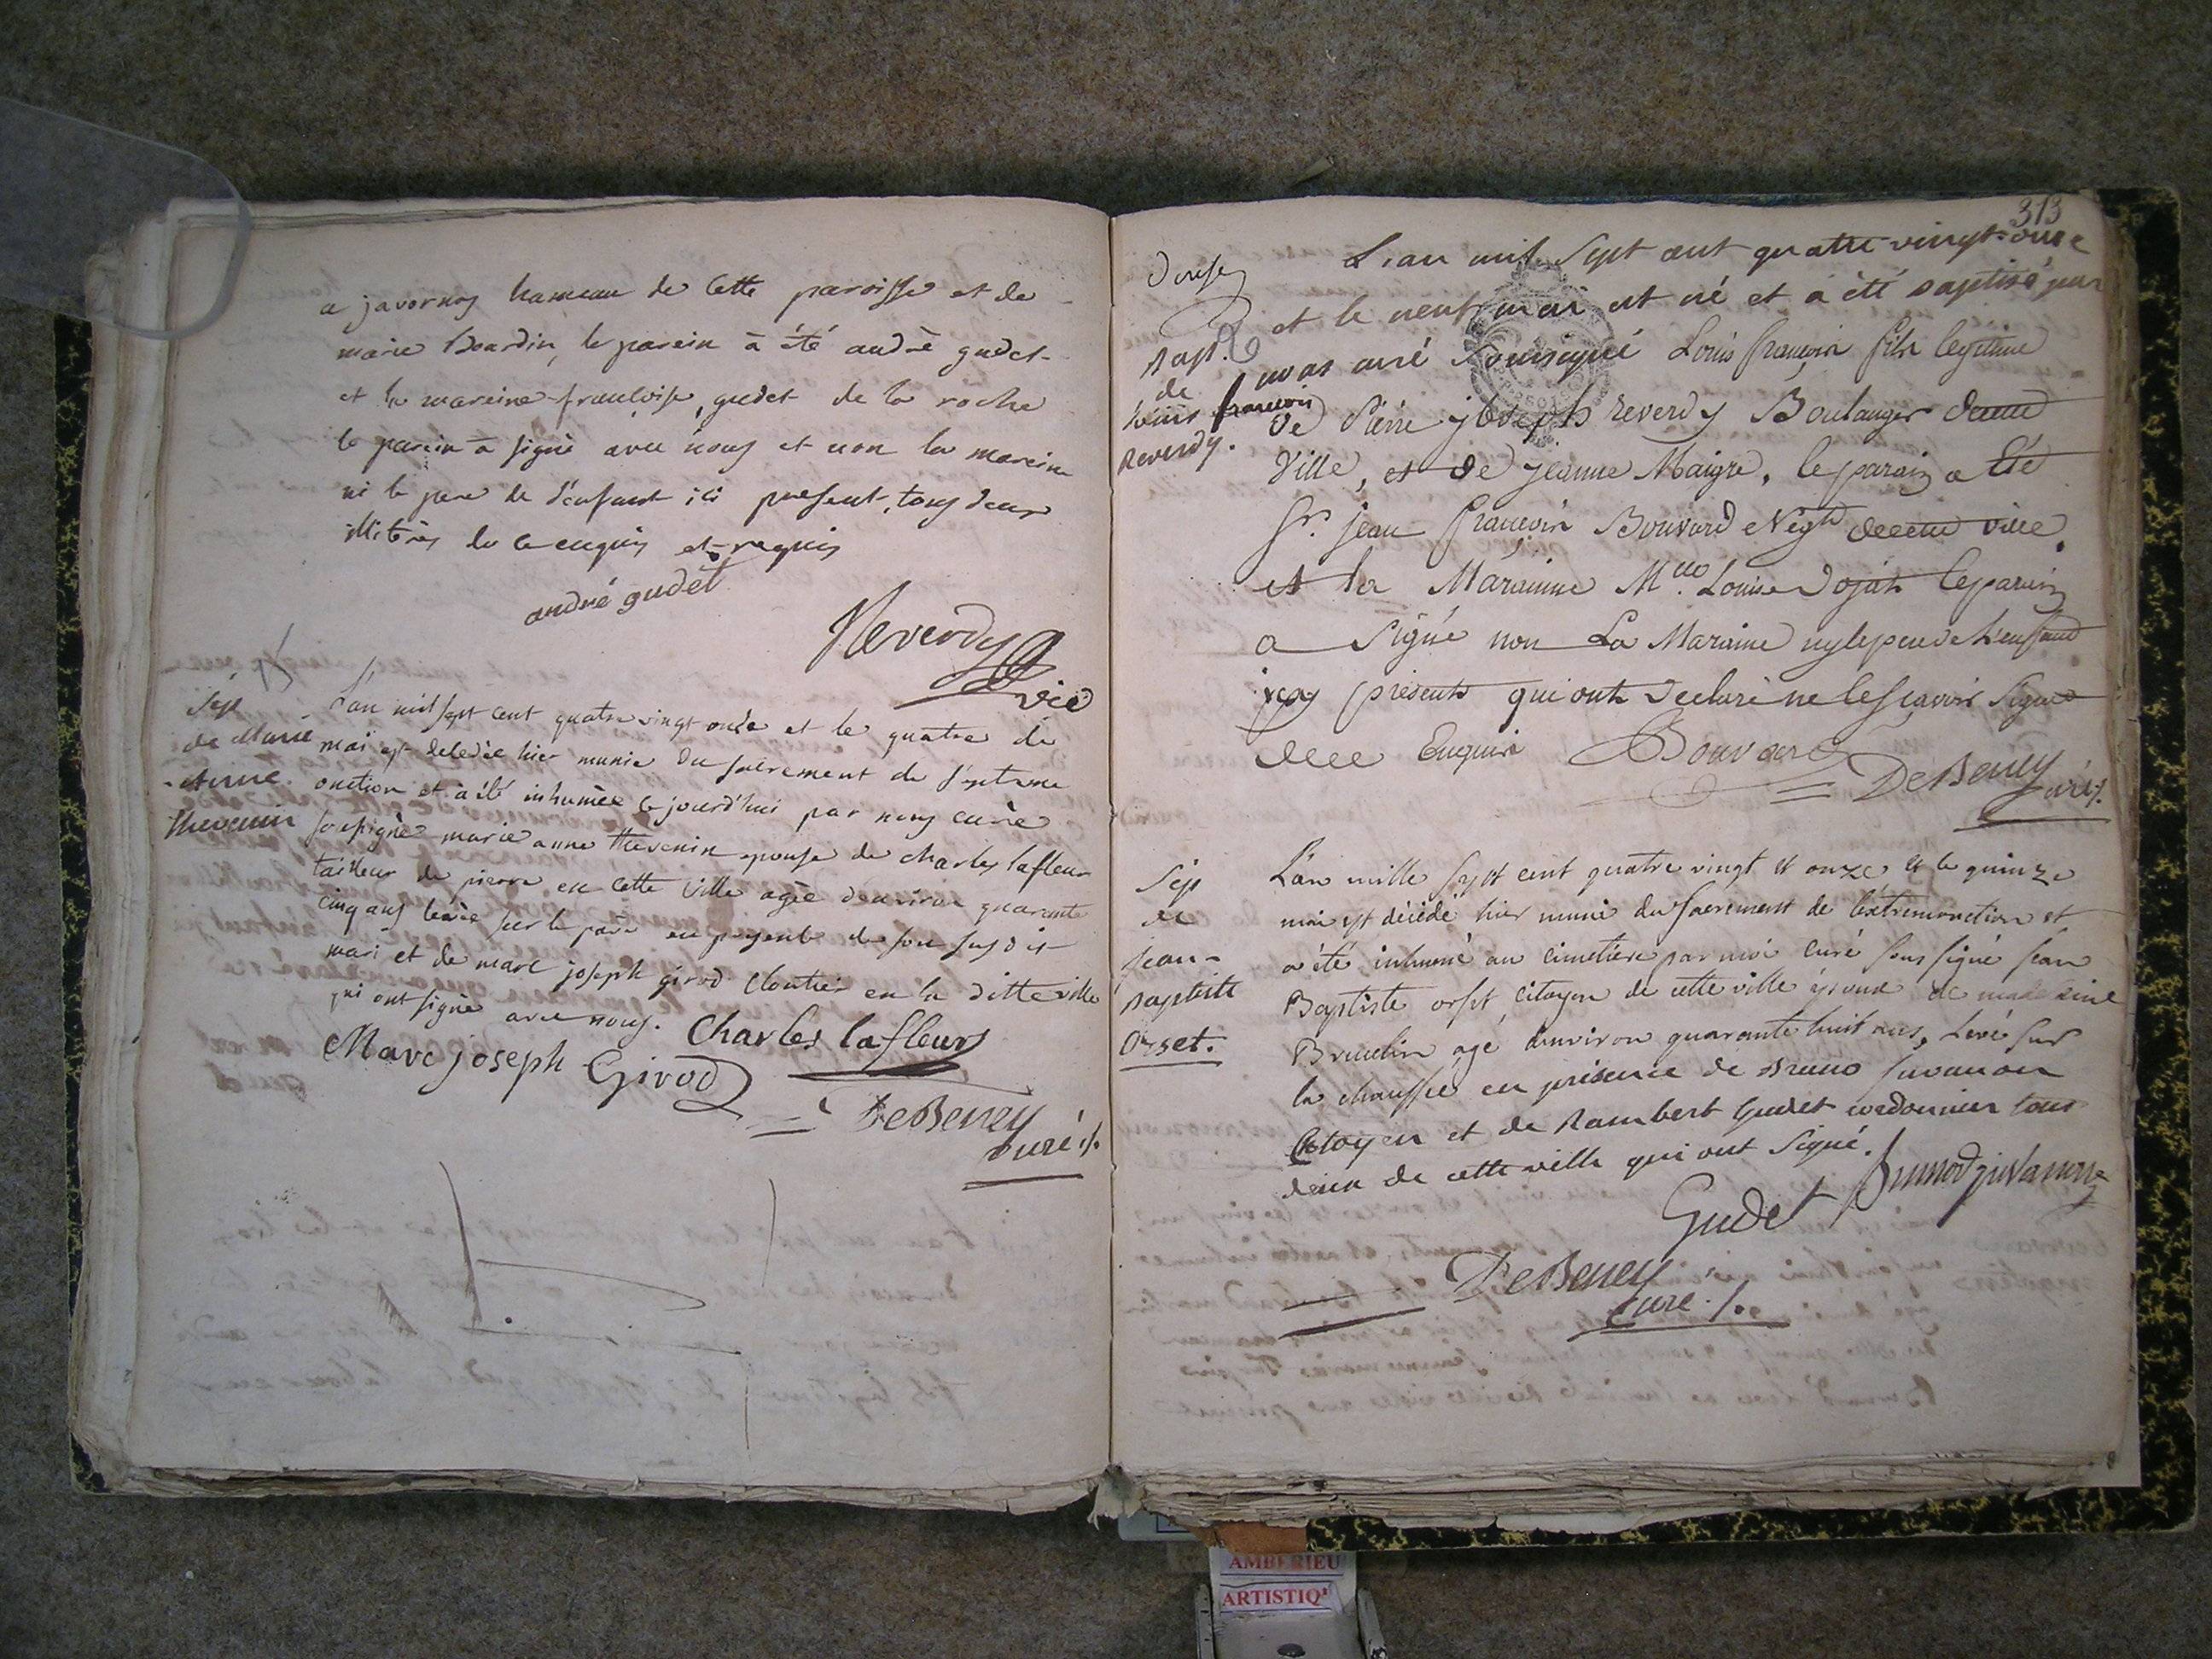 a javornoz hameau de Cette paroisse et de
marie Bourdin, le parein à été andrè gudet
et la mareine francoise gudet de la roche
le parein à signè avec nous et non la mareine
ni le pere de l'enfant ici present, tous deux
illitérès de ce enquis et requis
andré gudet
Reverdy
vic
Sep
de Marie
Anne
thevenin
L'an mil sept cent quatre vingt onze et le quatre de
mai est decedèe hier munie du sacrement de l'extreme
onction et à été inhumèe ce jourd'hui par nous curè
soussignè marie anne thevenin epouse de charles lafleur
tailleur de pierre en cette ville agèe denviron quarante
cinq ans levèe sur le pavè en presence de son susdit
mari et de marc joseph girod Cloutier en la ditte ville
qui ont signè avec nous.
Charles lafleur
Marc joseph Girod
DeBeney
curé ./.
313
L'an mil Sept cent quatre vingt onze
et le neuf mai est né et à été baptisé par
Bapt.
de
Louis francois
Reverdy.
moi curé Soussigné Louis françois fils legitime
de Pierre joseph reverdy Boulanger de cette
Ville, et de jeanne Maigre, le parain a été
Sr. jean françois Bouvard Negt de cette ville,
et la Marainne Mlle Louise Dojat le parain
a Signé non La Maraine ny le pere de L'enfant
icy présents qui ont declaré ne le sçavoir Signer
de ce Enquis
Bouvard
DeBeney
curé ./.
Sep
de
jean-
Baptiste
Orset.
L'an mille Sept cent quatre vingt et onze et le quinze
mai est décédé hier muni du sacrement de l'extremonction et
a été inhumé au cimetière par moi curé sous signé jean
Baptiste orset citoyen de cette ville époux de madelaine
agé d'environ quarante huit ans, Levé sur
la chaussée en présence de Bruno juvanon
Citoyen et de Rambert Gudet cordonnier tous
deux de cette ville qui ont Signé.
Brunod juvanon
Gudet
DeBeney
Curé ./.
AMBERIEU
ARTISTIQ